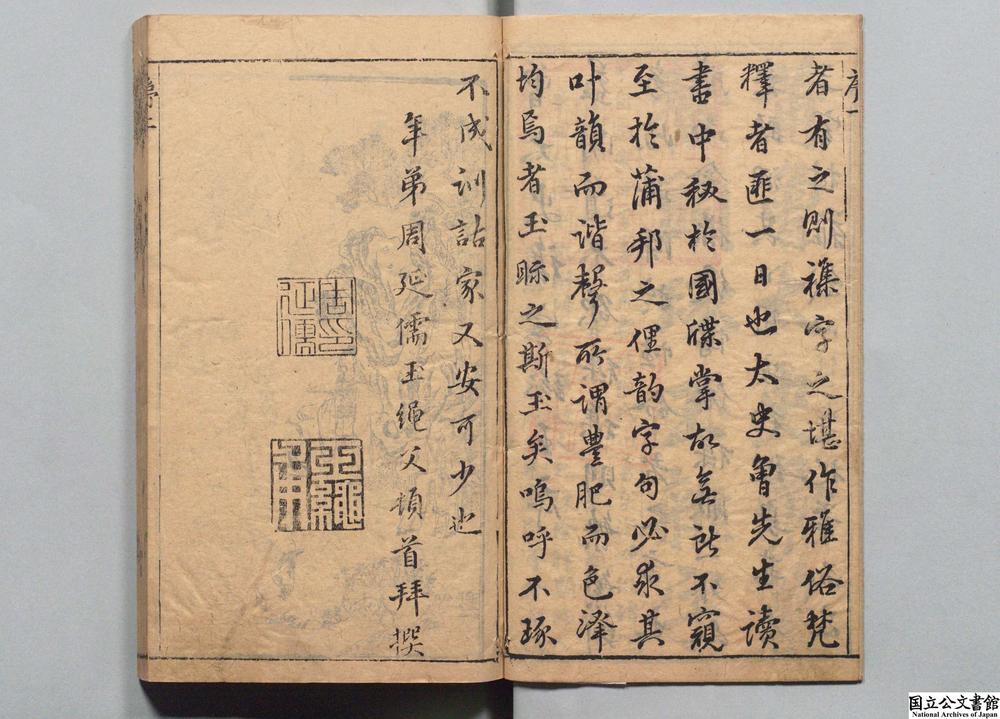 序一
者有之則襍字之堪作雅俗梵
釋者匪一日也太史曾先生讀
書中秘於國牒掌故無所不窺
至於蒲邦之俚韵字句必求其
叶韻而諧聲所謂豊肥而色澤
均焉者玉眎之斯玉矣嗚呼不琢
不成訓詁家又安可少也
年弟周延儒玉繩父頓首拜撰
周印
延儒
玉繩
序二
国立公文書館
National Archives of Japan